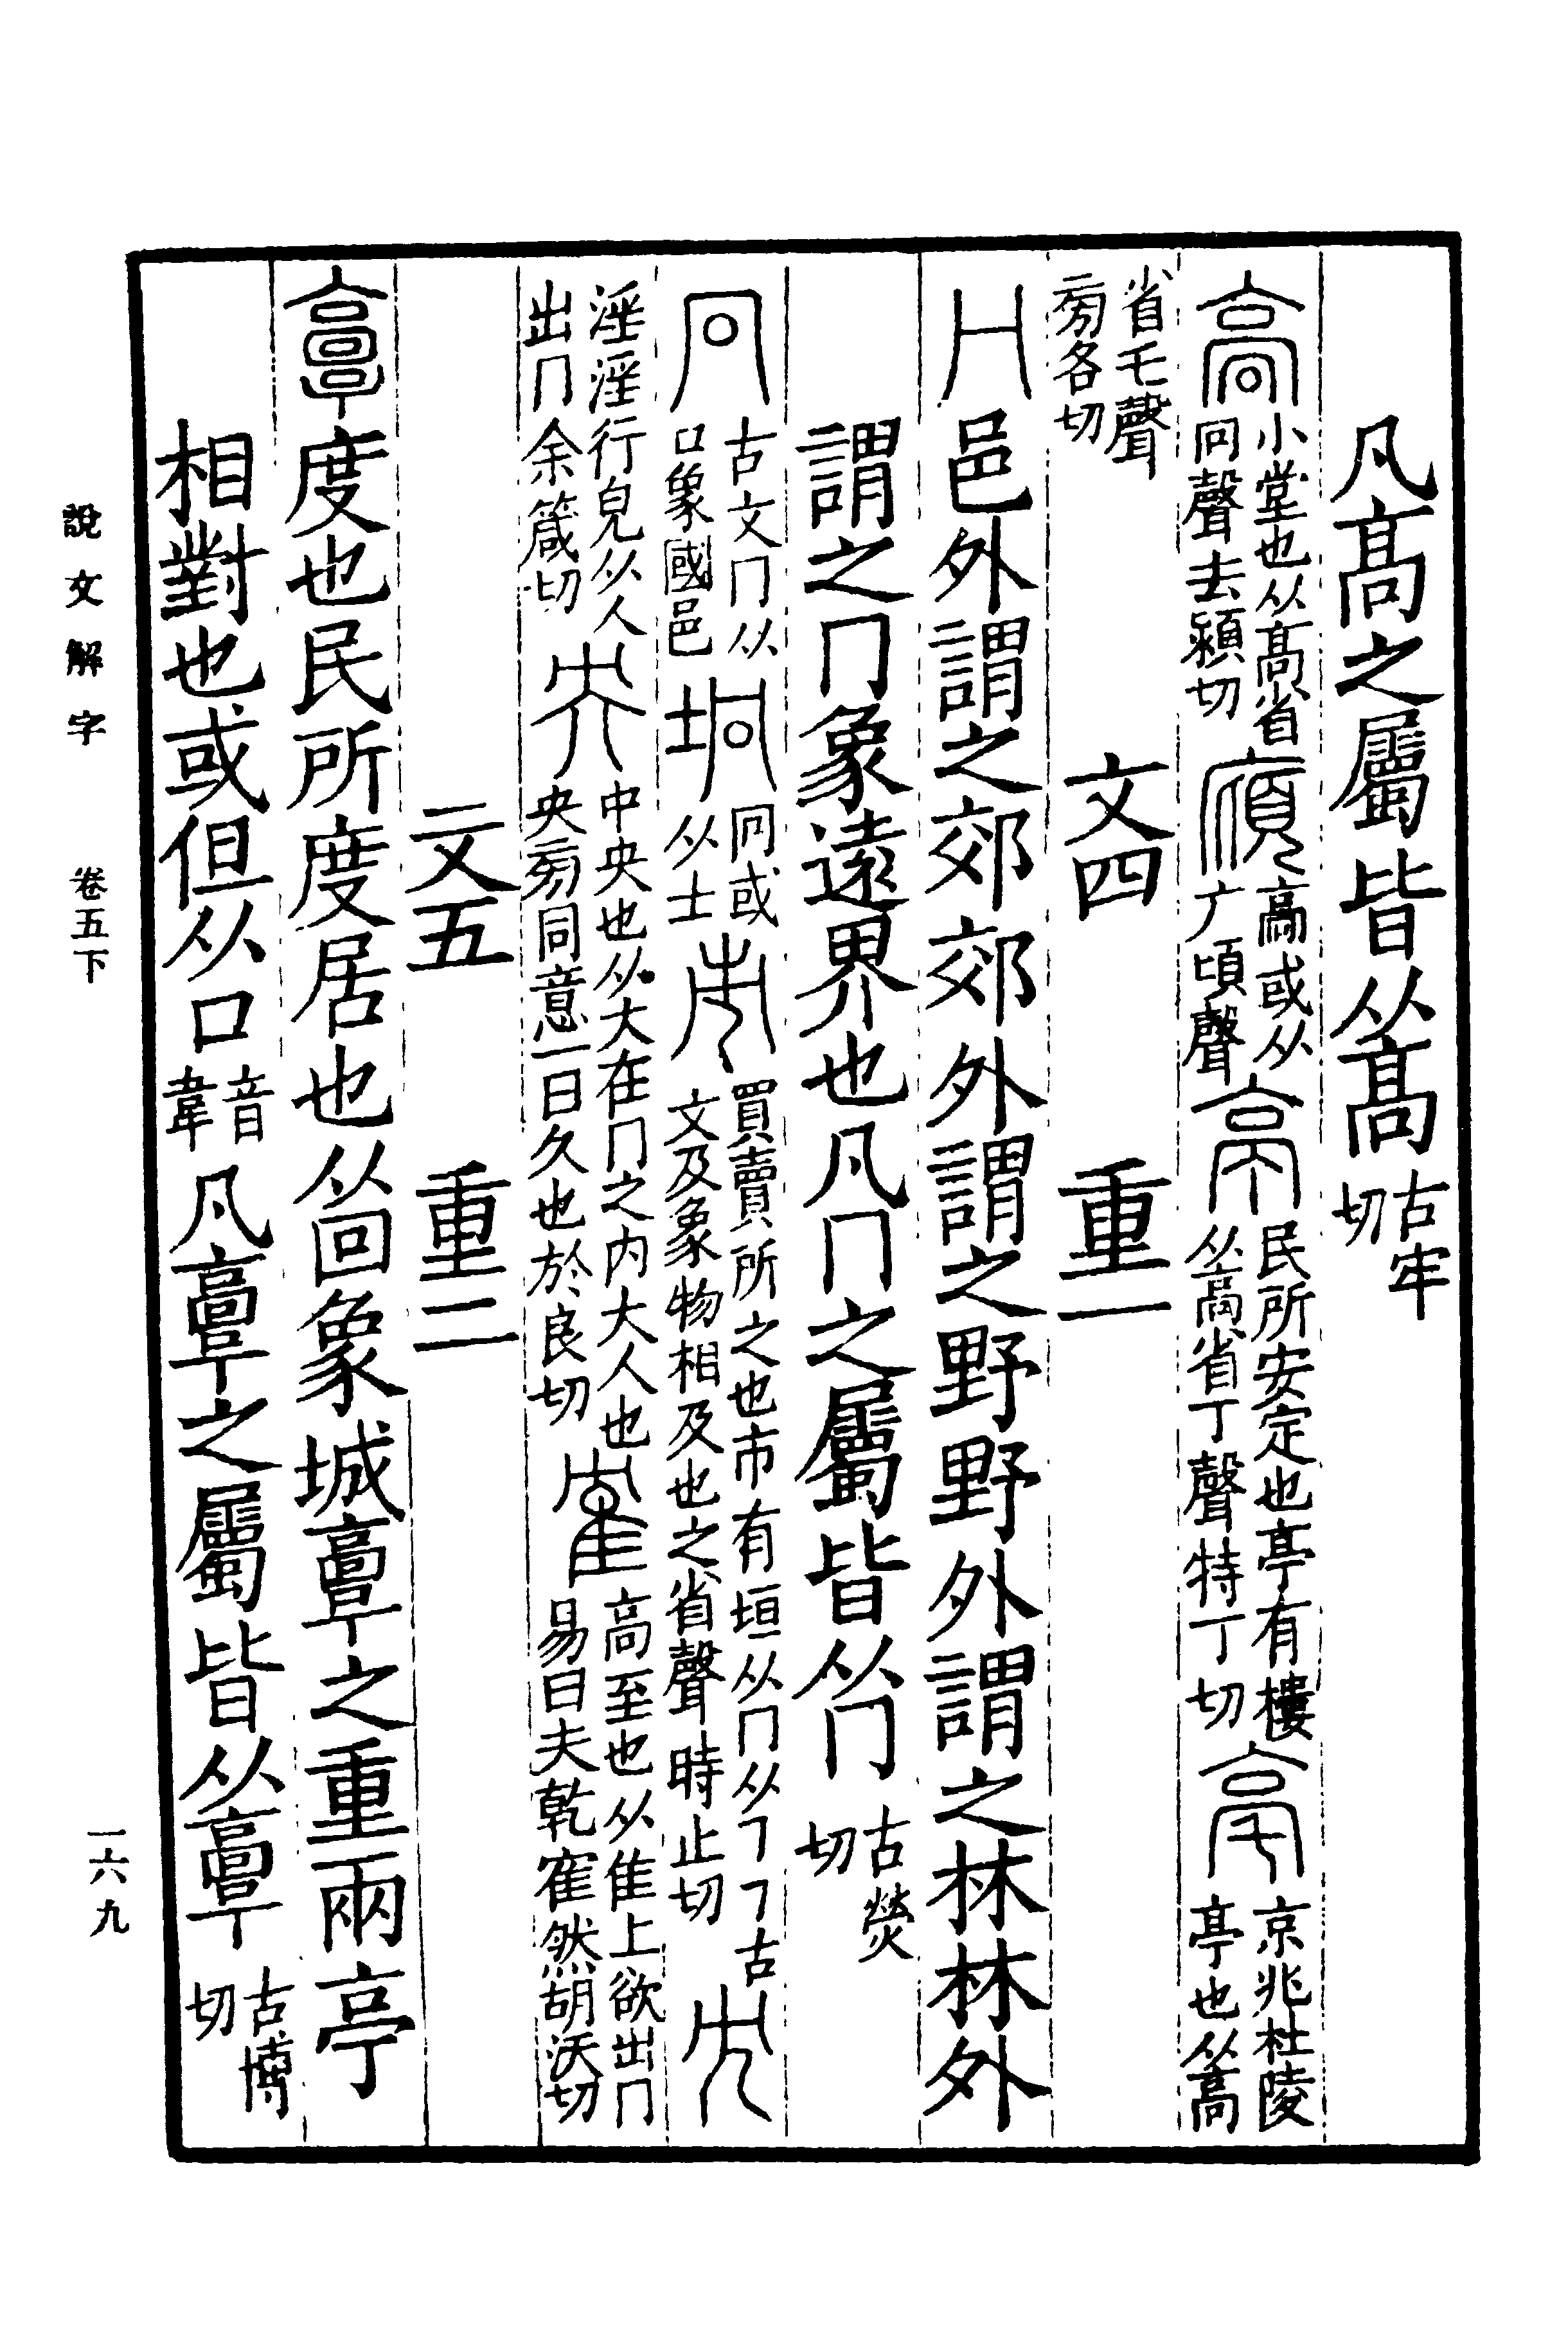 凡高之屬皆从高古牢切
高小堂也从高省冋聲去潁切廎高或从广頃聲亭民所安定也亭有樓从高省丁聲特丁切亳京兆杜陵亭也从高
省乇聲㫄各切
文四 重一
冂邑外謂之郊郊外謂之野野外謂之林林外
謂之冂象遠界也凡冂之屬皆从冂古熒切
冋古文冂从口象國邑坰冋或从土市買賣所之也市有垣从冂从㇇㇇古文及象物相及也之省聲時止切冘
淫淫行皃从人出冂余箴切央中央也从大在冂之內大人也央㫄同意一曰久也於良切隺高至也从隹上欲出冂易曰夫乾隺然胡沃切
文五 重二
𩫖度也民所度居也从回象城𩫖之重兩亭
相對也或但从口音韋凡𩫖之屬皆从𩫖古博切
說文解字 卷五下 一六九